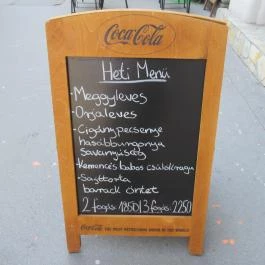 Coca-Cola
Heti Menü
-Meggyleves
-Orjaleves
-Cigánypecsenye
hasábburgonya
savanyúság
-Kemencés babos csülökragu
-Sajttorta
barack öntet
2 fogás: 1850 | 3 fogás: 2250
Coca-Cola THE MOST REFRESHING DRINK IN THE WORLD